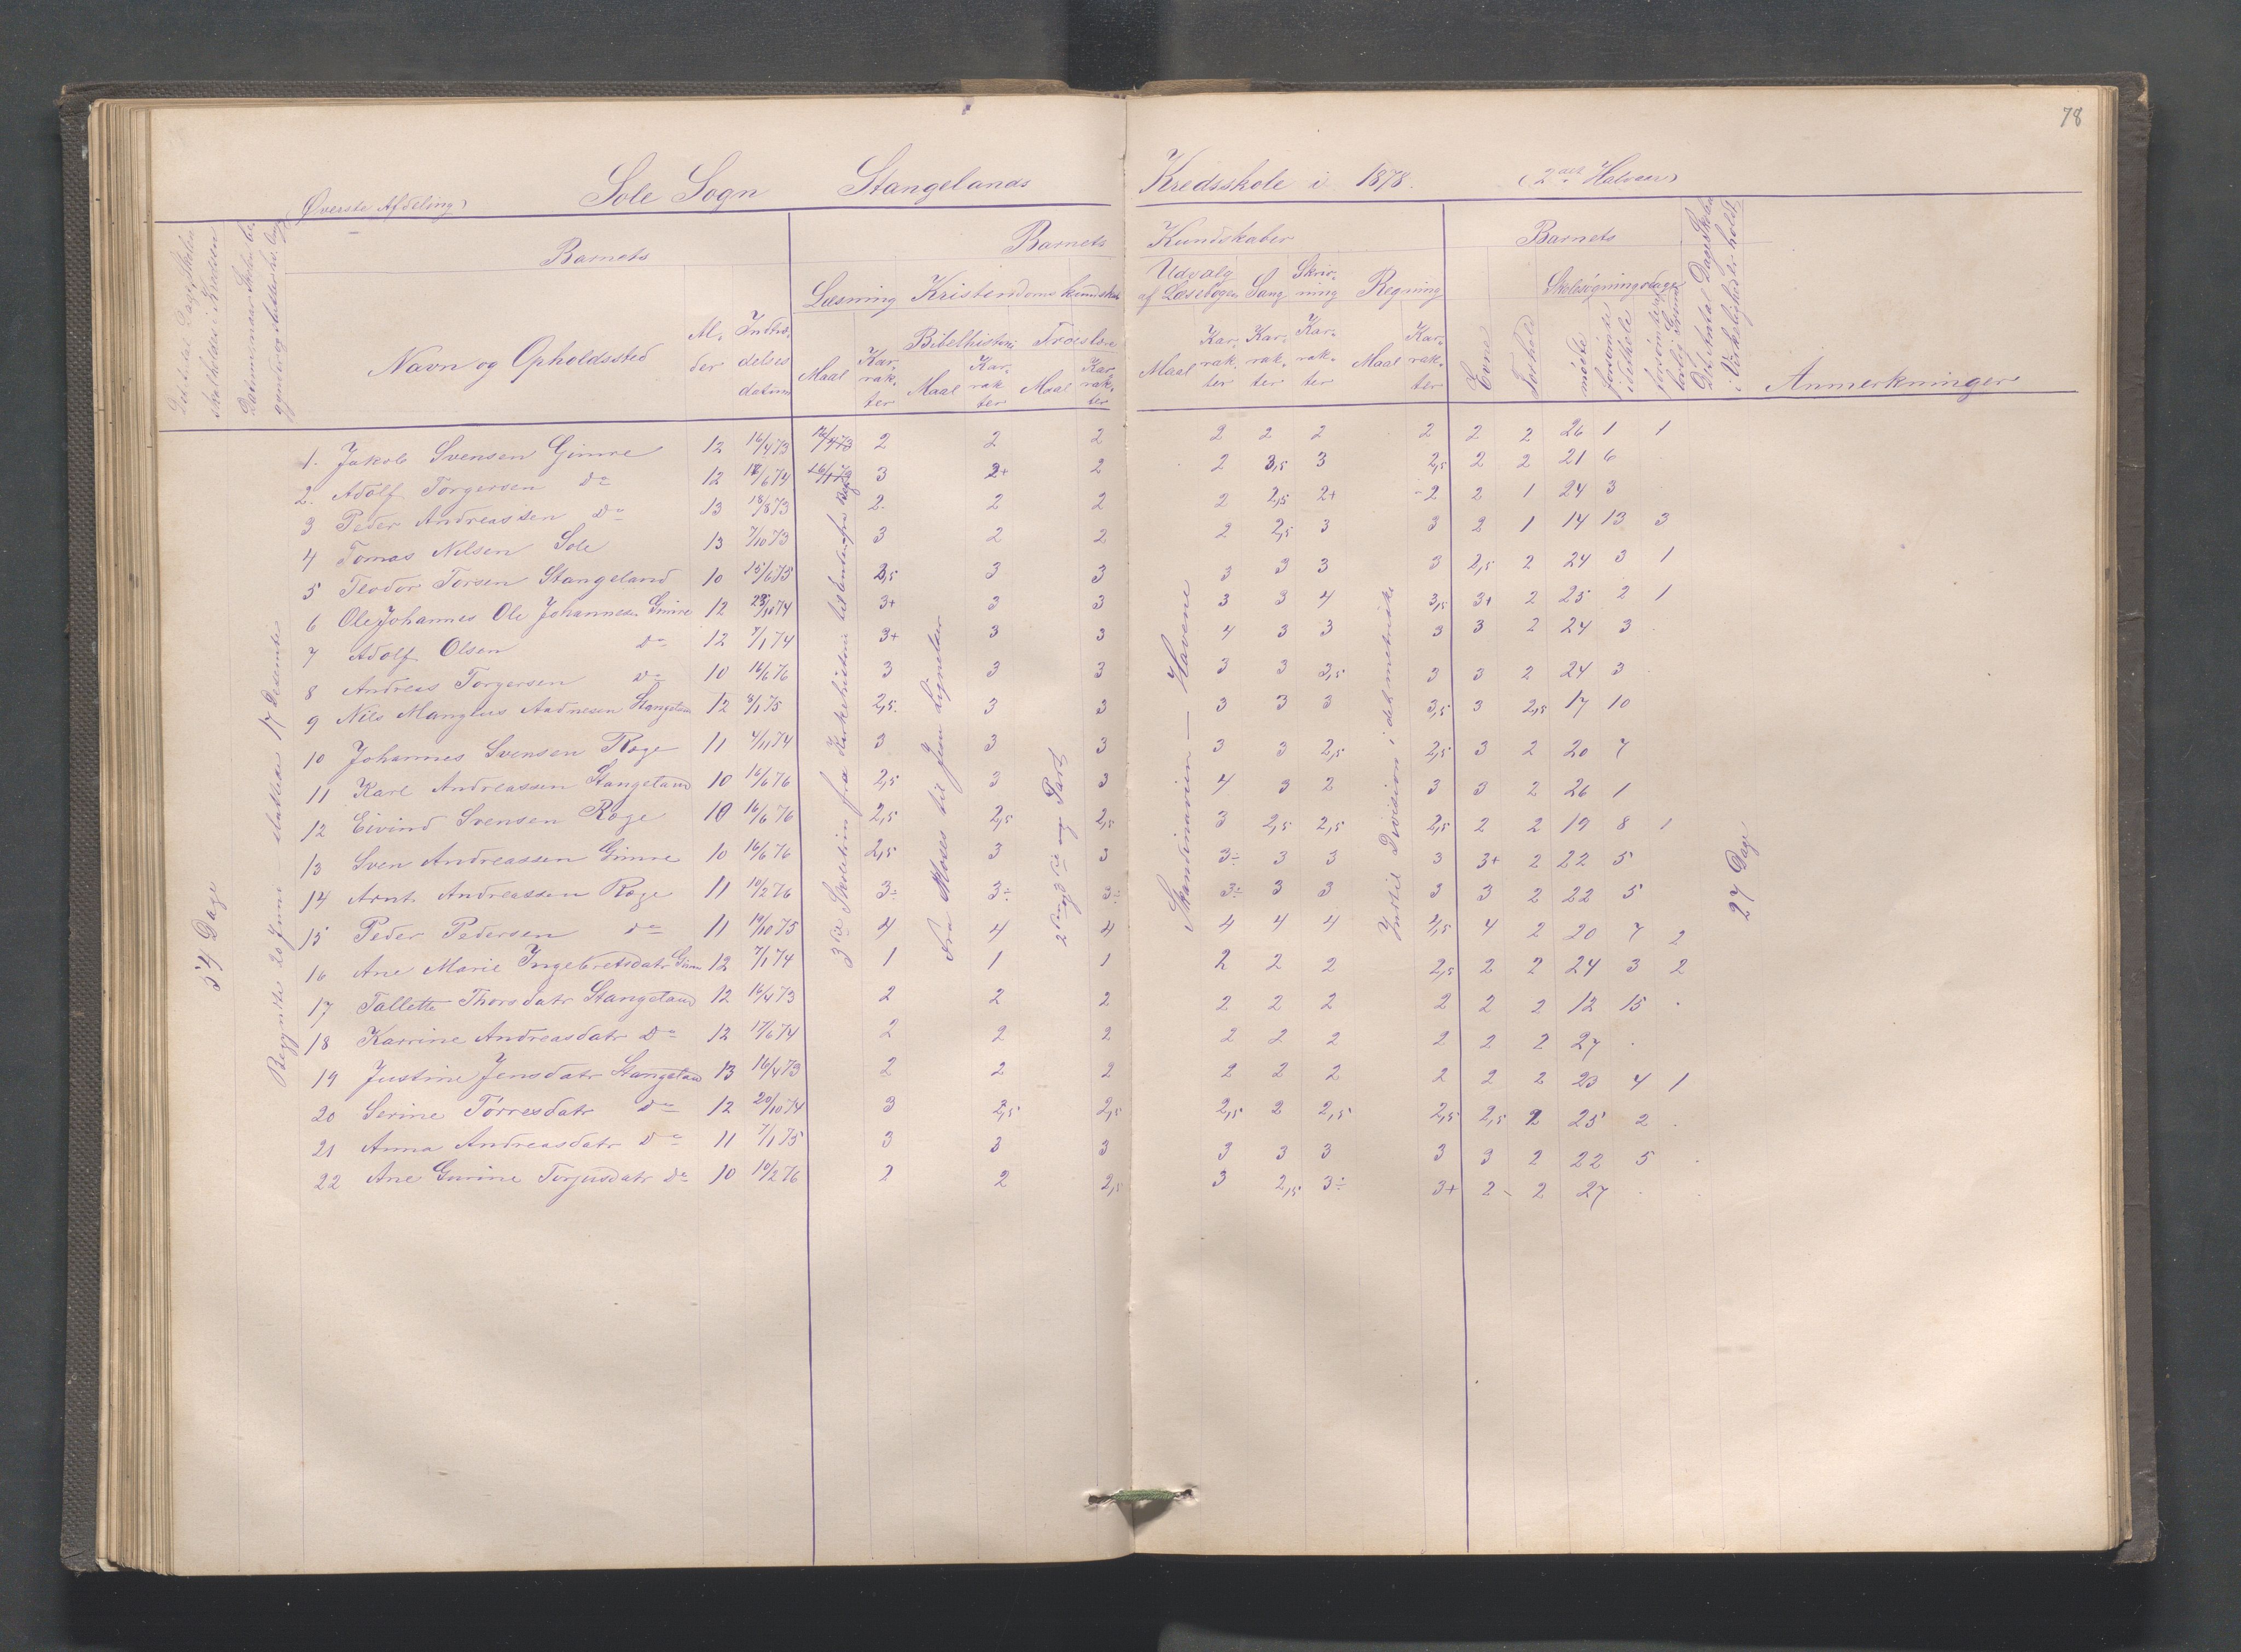 78
Øverste Afdeling
Sole Sogn Stangelands Kredsskole i 1878. (2det Halvaar)
Barnets
Barnets Kundskaber
Barnets
Læsning Kristendomskundskab Udvalg af Læsebogen Sang Skrivning Regning
Skolesøgningsdage
Bibelhistorie Troeslære
Navn og Opholdssted Alder Indtrædelsesdatum Maal Karrakter Maal Karrakter Maal Karrakter Maal Karrakter Karrakter Karrakter Maal Karrakter Evne Forhold mødte forsømte i det hele forsømte af lovlig Grund Det Antal Dage Skolen i Virkeligheden holdt Anmerkninger
54 Dage
Begyndte 20 Juni – sluttede 17 Desember
3die Skoletrin fra Kirkehistorie til
Fra Moses til Jesu Lignelser
2den og 3die Part
Skandinavien – Havene
Indtil Division i det metriske
27 Dage
1. Jakob Svensen Gimre 12 16/4 73 2 2 2 2 2 2 2 2 2 26 1 1
2. Adolf Torgersen do 12 18/6 74 3 2+ 2 2 3,5 3 2,5 2 2 21 6
3 Peder Andreassen do 13 18/8 73 2 2 2 2 2,5 2+ 2 2 1 24 3
4 Tomas Nilsen Sole 13 7/10 73 3 2 2 2 2,5 3 3 2 1 14 13 3
5 Teodor Torsen Stangeland 10 15/6 75 3,5 3 3 3 3 3 3 2,5 2 24 3 1
6 Ole Johannes Ole Johannesen Gimre 12 23/10 74 3+ 3 3 3 3 4 3,5 3+ 2 25 2 1
7 Adolf Olsen do 12 7/1 74 3+ 3 3 4 3 3 3 3 2 24 3
8 Andreas Torgersen do 10 16/6 76 3 3 3 3 3 3,5 3 3 2 24 3
9 Nils Mangnus Aadnesen Stangeland 12 8/1 75 2,5 3 3 3 3 3 3,5 3 2,5 17 10
10 Johannes Svensen Røge 11 4/11 74 3 3 3 3 3 2,5 2,5 3 2 20 7
11 Karl Andreassen Stangeland 10 16/6 76 2,5 3 3 4 3 2 3 3 2 26 1
12 Eivind Svensen Røge 10 16/6 76 2,5 2,5 2,5 3 2,5 2,5 2,5 2 2 19 8 1
13 Sven Andreassen Gimre 10 16/6 76 2,5 3 3 3÷ 3 3 3 3+ 2 22 5
14 Arnt Andreassen Røge 11 10/2 76 3÷ 3÷ 3÷ 3÷ 3 3 3 3 2 22 5
15 Peder Pedersen do 11 19/10 75 4 4 4 4 4 4 4,5 4 2 20 7 2
16 Ane Marie Ingebretsdatr Gimre 12 7/1 74 1 1 1 2 2 2 2,5 2 2 24 3 2
17 Tallette Thorsdatr Stangeland 12 16/4 73 2 2 2 2 2 2 2 2 2 12 15
18 Karrine Andreasdatr do 12 17/6 74 2 2 2 2 2 2 2 2 2 27
19 Justine Jensdatr Stangeland 13 16/4 73 2 2 2 2 2 2 2 2 2 23 4 1
20 Serine Tørresdatr do 12 20/10 74 3 2,5 2,5 2,5 2 2,5 2,5 2,5 2 25 2
21 Anna Andreasdatr do 11 7/1 75 3 3 3 3 3 3 3 3 2 22 5
22 Ane Gurine Torjusdatr do 10 10/2 76 2 2 2,5 3 2,5 3÷ 3+ 2 2 27